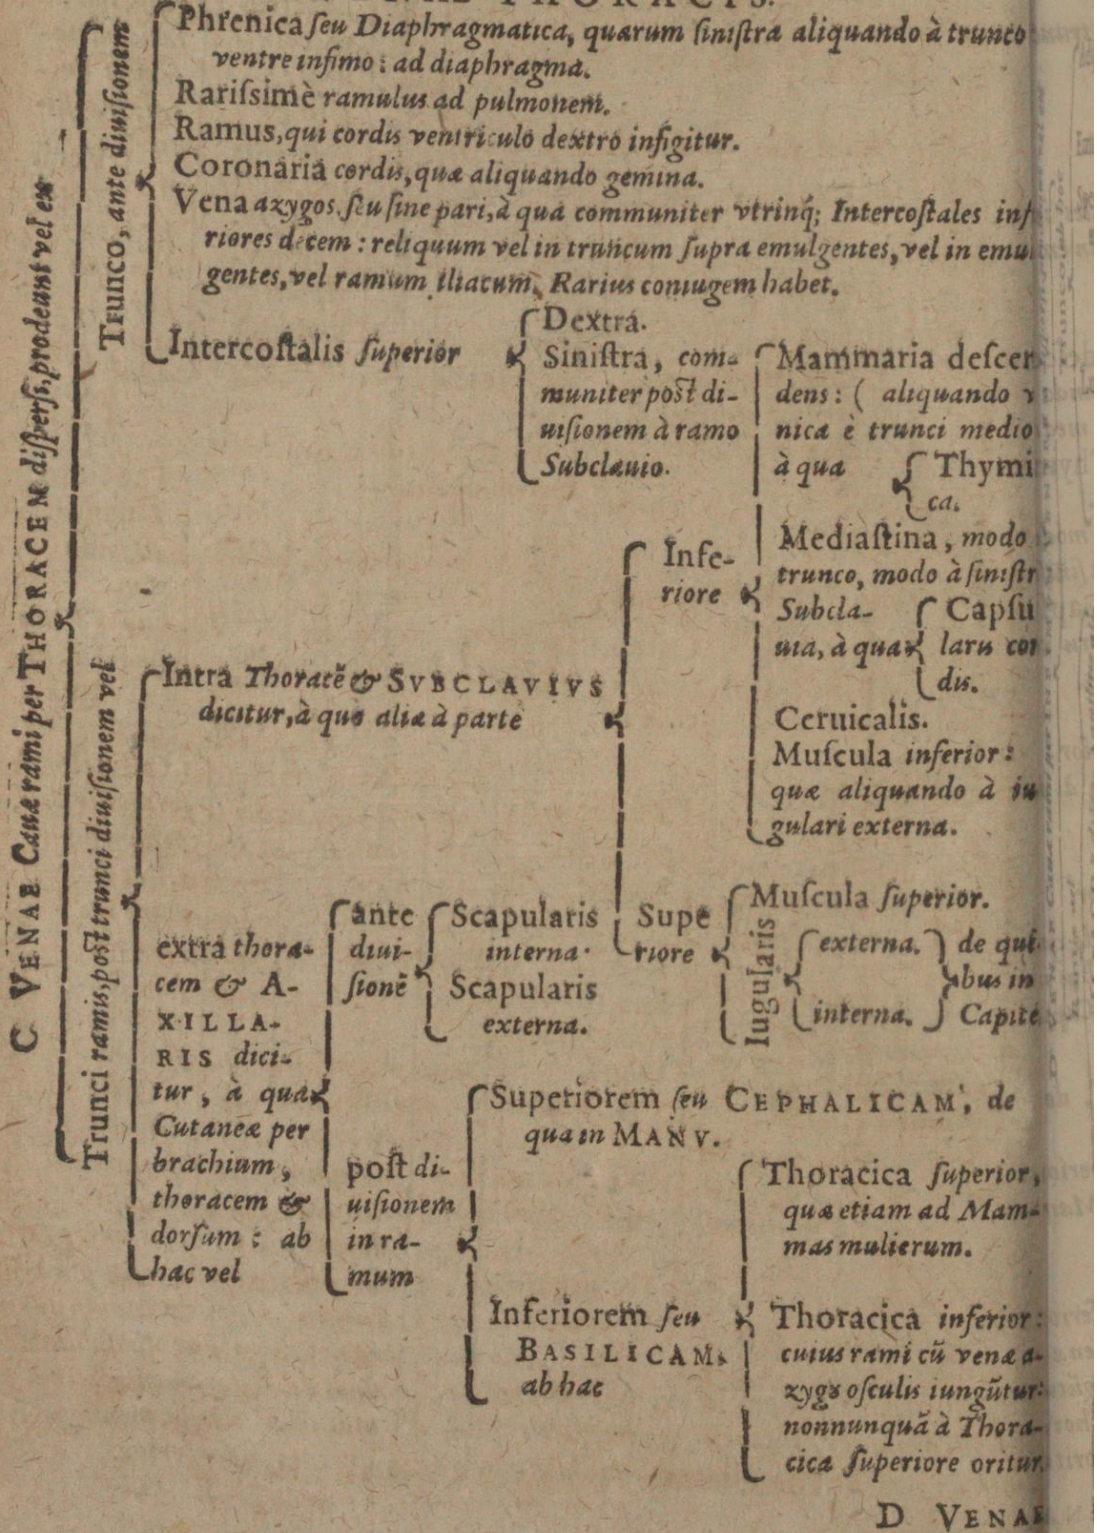 THORACIS.
C VENAE Cauæ rami per THORACEM dispersi, prodeunt vel ex
Trunco, ante diuisionem
Phrenica ſeu Diaphragmatica, quarum ſiniſtra aliquando à trunco
ventre infimo: ad diaphragma.
Rariſsimè ramulus ad pulmonem.
Ramus, qui cordis ventriculo dextro infigitur.
Coronaria cordis, quæ aliquando gemina.
Vena azygos, ſeu ſine pari, à qua communiter vtrinq; Intercoſtales inf
riores decem: reliquum vel in truncum ſupra emulgentes, vel in emul
gentes, vel ramum iliacum. Rarius coniugem habet.
Intercoſtalis ſuperior
Dextra.
Siniſtra, com-
muniter poſt di-
uiſionem à ramo
Subclauio.
Trunci ramis, poſt trunci diuiſionem vel
Intra Thoracē & SVBCLAVIVS
dicitur, à quo aliæ à parte
Infe-
riore
Mammaria deſcen
dens: ( aliquando v
nica è trunci medio
à qua
Thymi
ca.
Mediaſtina, modo
trunco, modo à ſiniſtr
Subcla-
uia, à qua
Capſu
laris cor
dis.
Ceruicalis.
Muſcula inferior:
quæ aliquando à iu
gulari externa.
Supe
riore
Muſcula ſuperior.
Iugularis
externa.
interna.
de qui
bus in
Capite
extra thora-
cem & A-
XILLA-
RIS dici-
tur, à qua
Cutaneæ per
brachium,
thoracem &
dorſum: ab
hac vel
ante
diui-
ſionē
Scapularis
interna.
Scapularis
externa.
poſt di-
uiſionem
in ra-
mum
Superiorem ſeu CEPHALICAM, de
qua in MANV.
Inferiorem ſeu
BASILICAM,
ab hac
Thoracica ſuperior,
quæ etiam ad Mam-
mas mulierum.
Thoracica inferior:
cuius rami cū venæ a-
zygȣ oſculis iungūtur:
nonnunquā à Thora-
cica ſuperiore oritur.
D VENAE